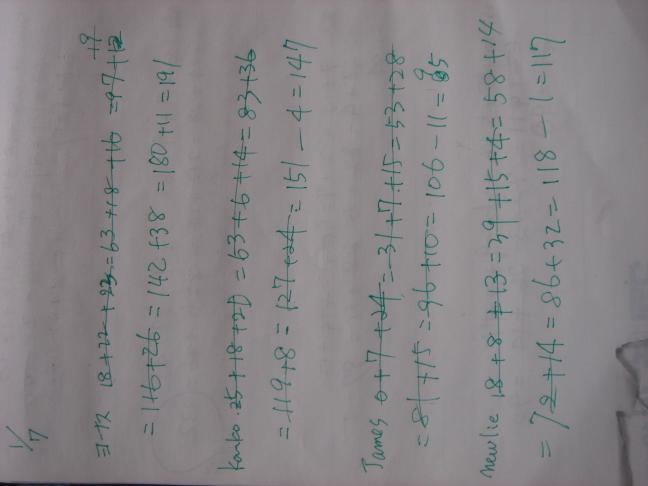 1/7
18+22+23=63+18+16=97+19
=116+26=142+38=180+11=191
Kanko 25+18+20=63+6+14=83+36
=119+8=127+24=151-4=147
James 0+7+24=31+7+15=53+28
=81+15=96+10=106-11=95
Newlie 18+8+13=39+15+4=58+14
=72+14=86+32=118-1=117